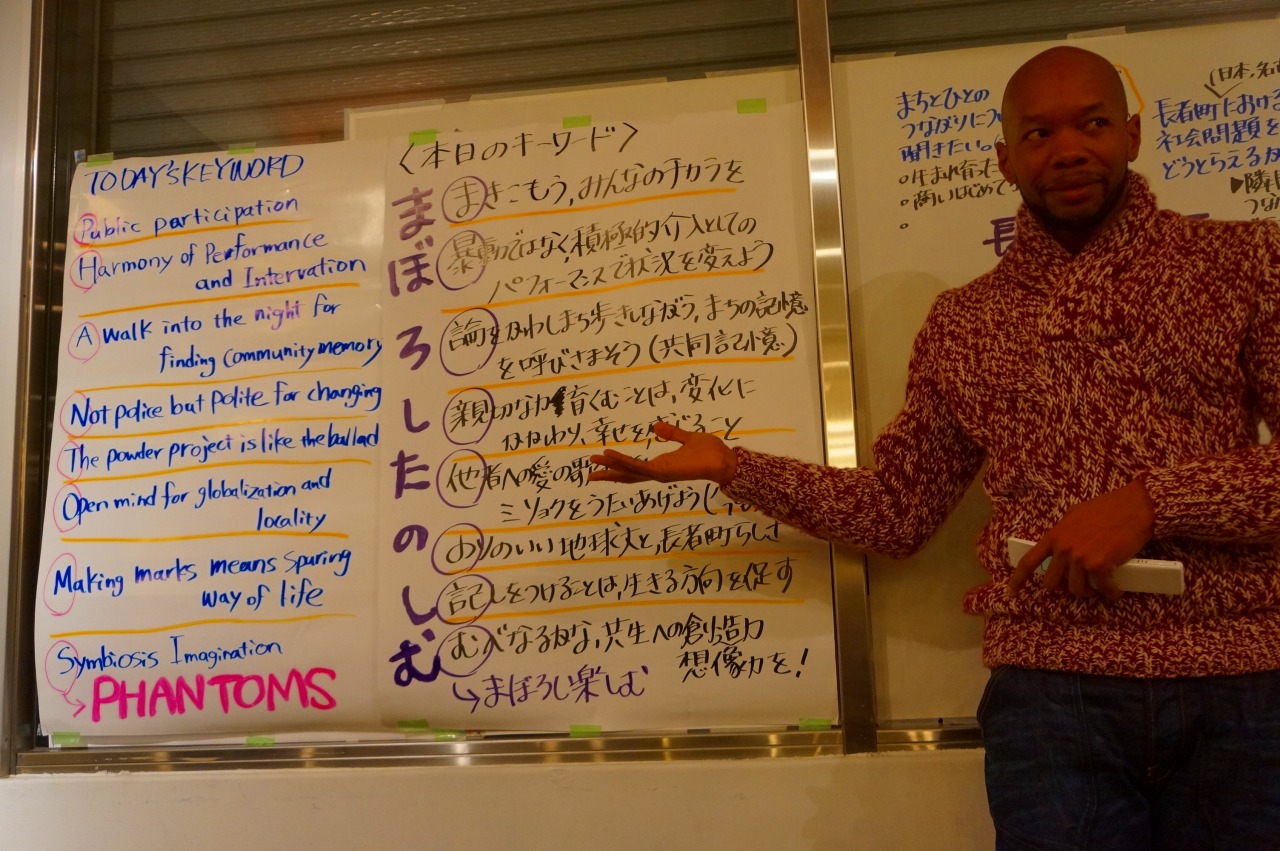 TODAY'S KEYWORD
Public participation
Harmony of Performance
and Intervation
A walk into the night for
finding community memory
Not police but polite for changing
The powder project is like the ballad
Open mind for globalization and
locality
Making marks means spuring
way of life
Symbiosis Imagination
PHANTOMS
〈本日のキーワード〉
まぼろしたのしむ
まきこもう,みんなのチカラを
暴動ではなく,積極的介入としての
パフォーマンスで状況を変えよう
論を交わしまち歩きしながら,まちの記憶
を呼びさまそう(共同記憶)
親切な力育くむことは,変化に
かかわり,幸せを感じること
他者への愛の歌
ミソヨクをうたいあげよう(
おりのいい地球文と,長者町らしさ
記しをつけることは,生きる方向を促す
むべなるかな,共生への創造力
想像力を!
↳まぼろし楽しむ
まちとひとの
つながりについ
聞きたい。
○生まれ育った
○商いはじめて
○
長
(日本,名古
長者町における
社会問題を
どうとらえるか
▶隣
つな